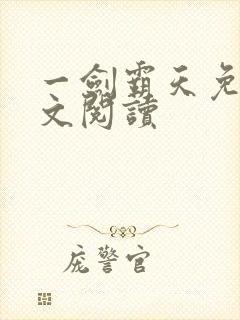 一劍霸天免
文閱讀
庞警官